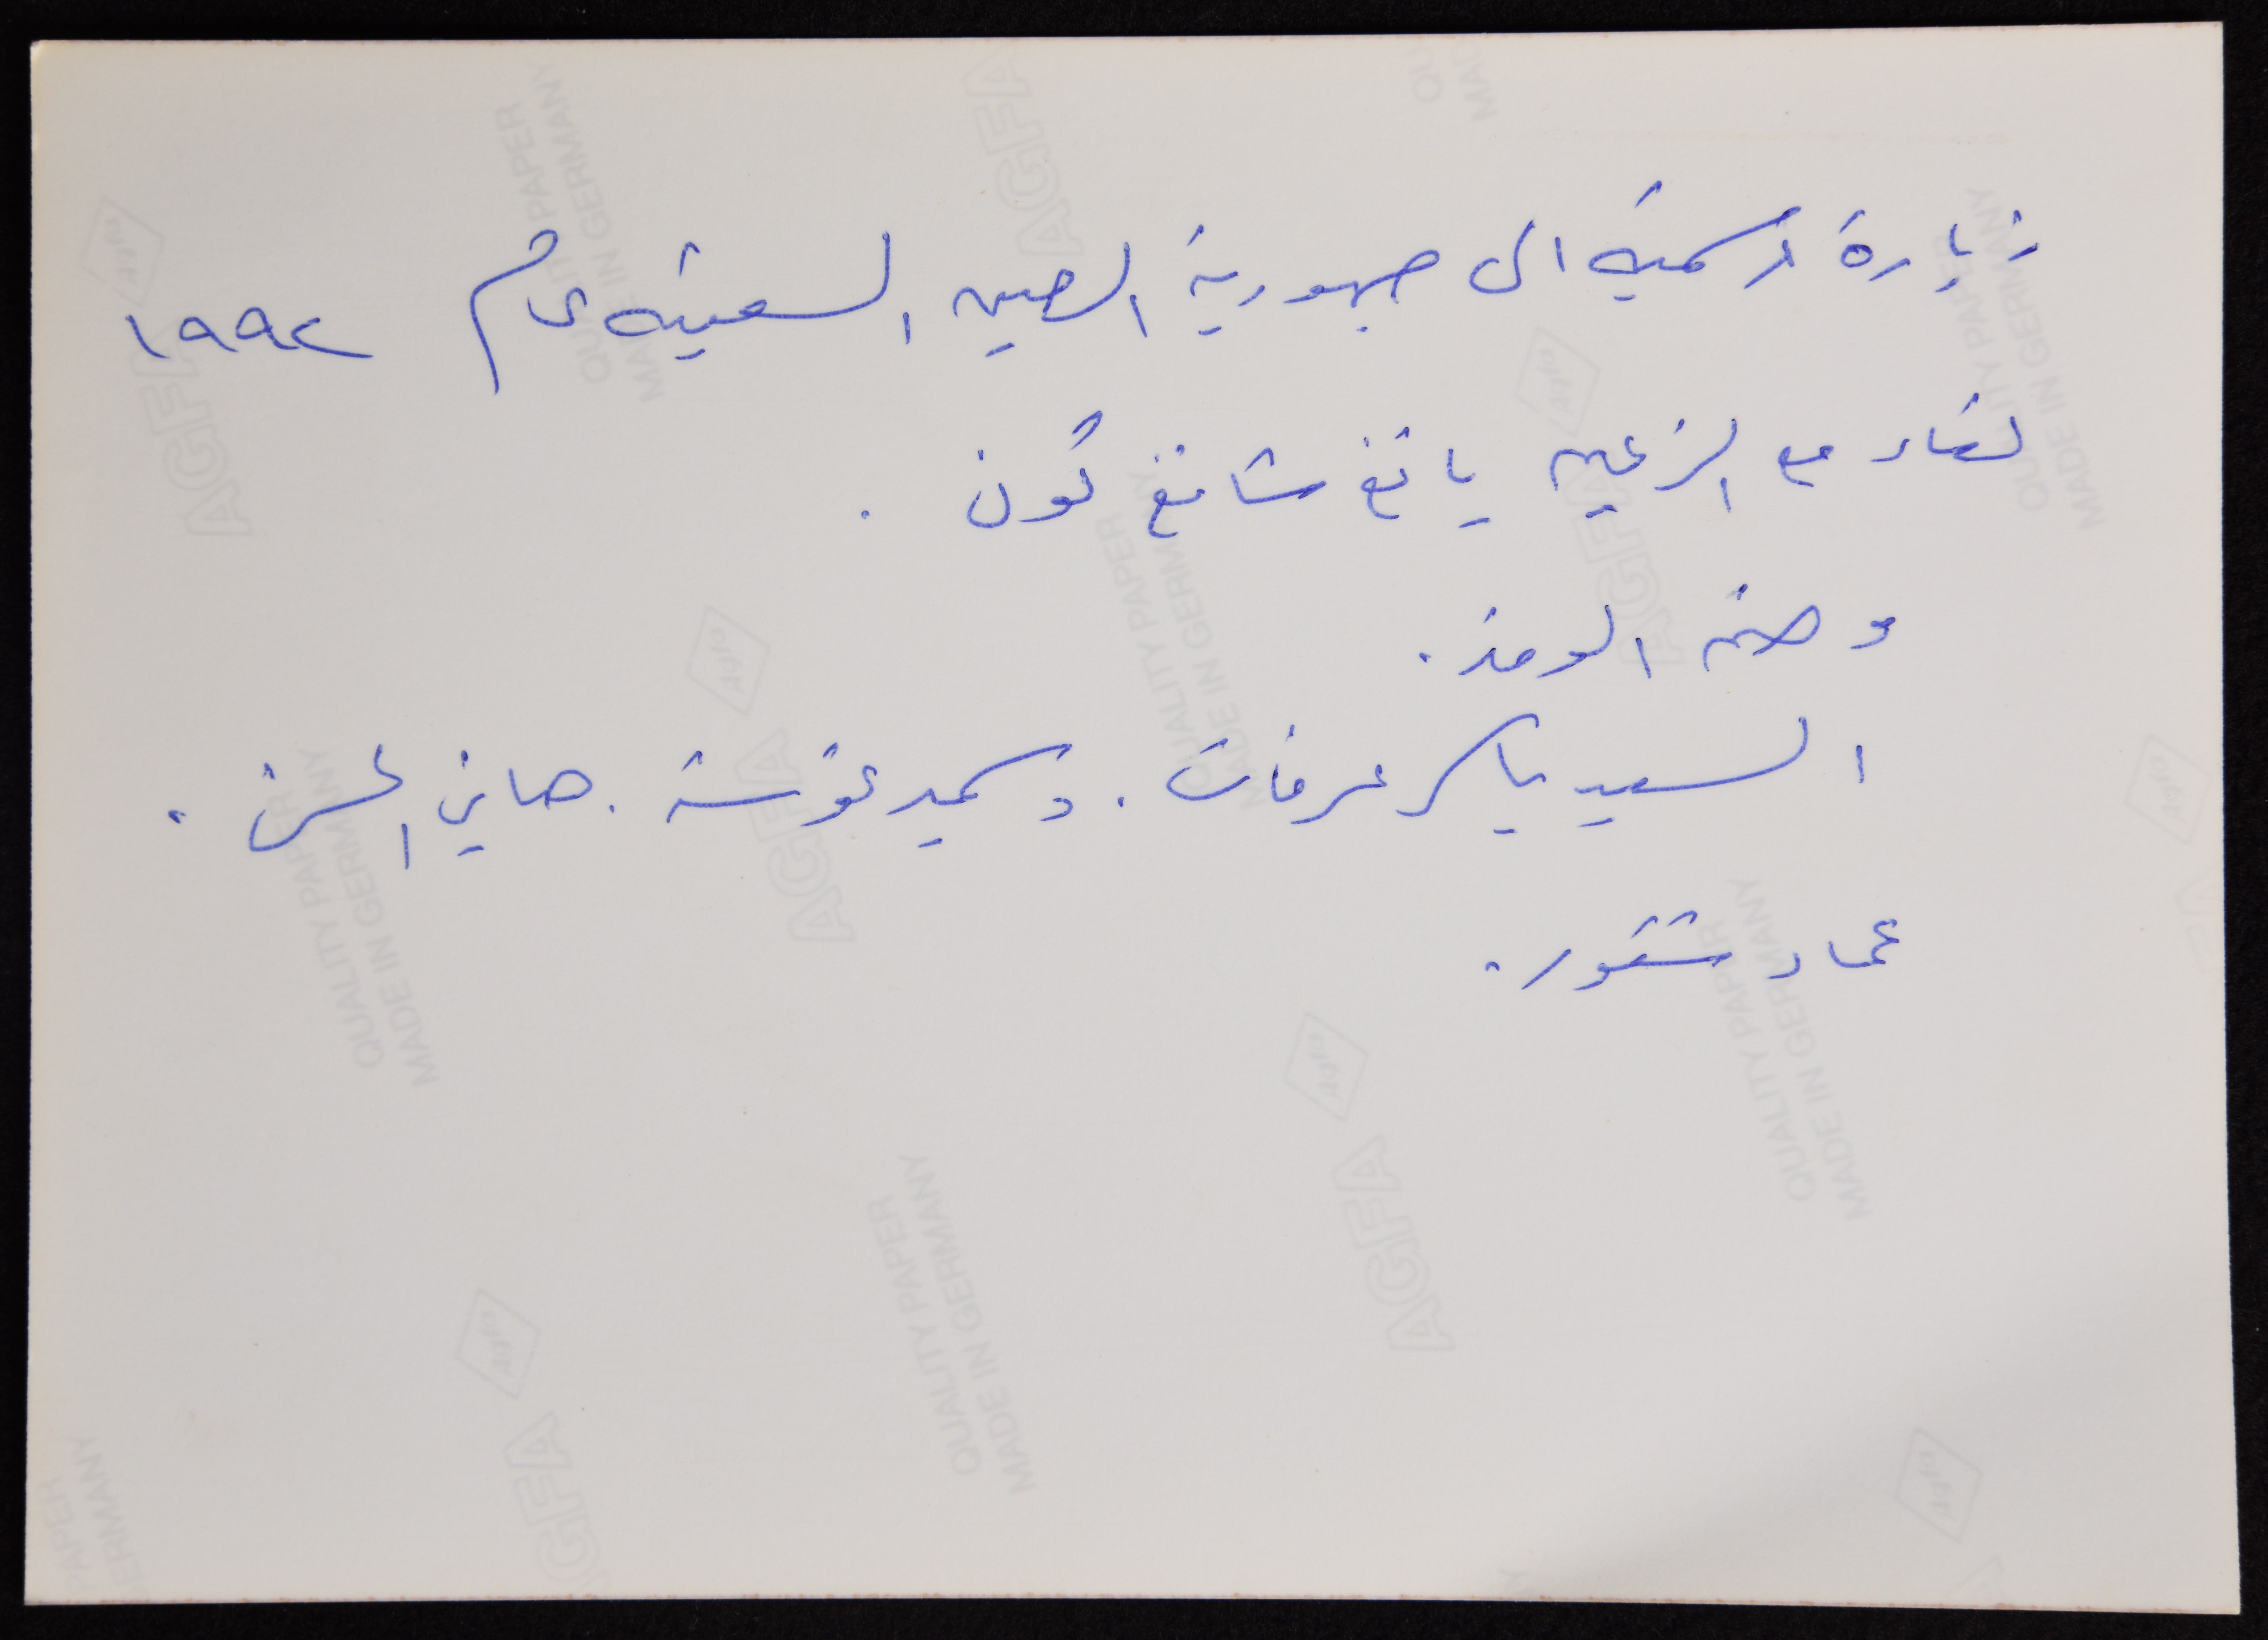 زيارة رسمية الى جمهورية الصين الشعبية عام ١٩٩٢
لقاء مع الزعيم يانغ شانغ كون .
وضم الوفد .
السيد ياسر عرفات . د سميد غوشة . هاني الحسن .
عماد شقور .
AGFA
QUALITY PAPER
MADE IN GERMANY